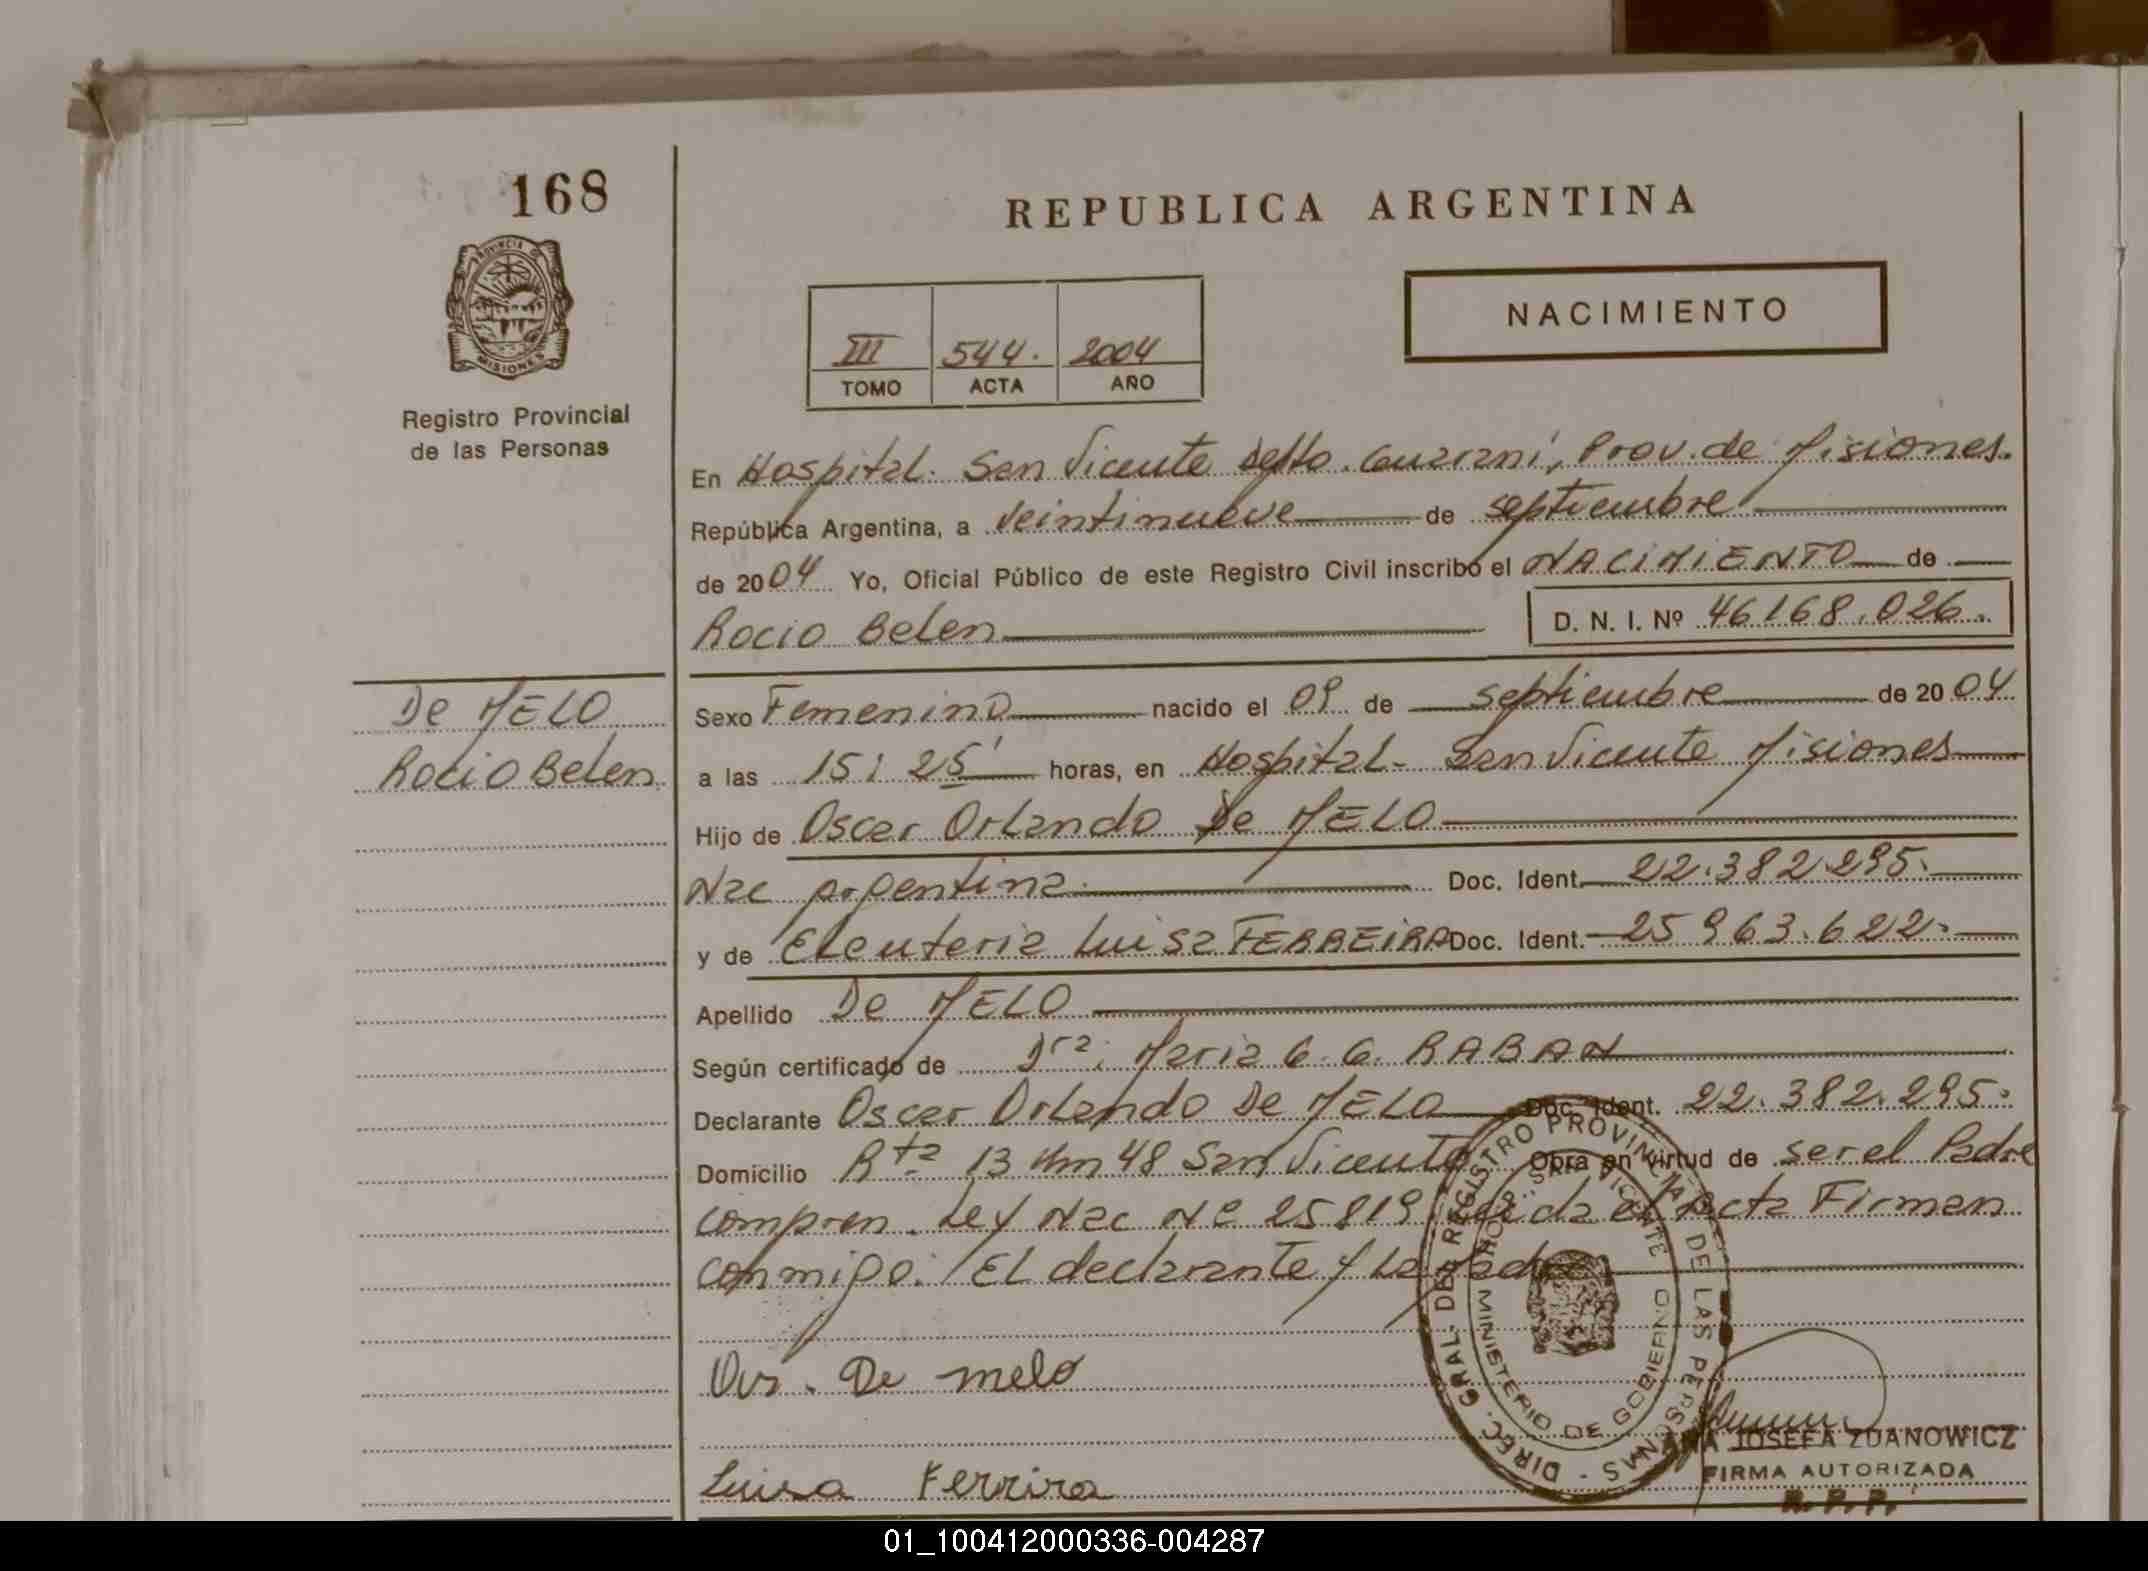 168
REPUBLICA ARGENTINA
PROVINCIA DE
MISIONES
NACIMIENTO
III 544. 2004
TOMO ACTA AÑO
Registro Provincial
de las Personas
En Hospital. San Vicente Depto. Guarani, Prov. de Misiones.
República Argentina, a Veintinueve de septiembre
de 2004 Yo, Oficial Público de este Registro Civil inscribo el NACIMIENTO de
Rocio Belen D. N. I. Nº 46168.026.
De MELO
Rocio Belen.
Sexo Femenino nacido el 09 de septiembre de 2004
a las 15:25' horas, en Hospital- San Vicente Misiones
Hijo de Oscar Orlando De MELO
Nac argentina Doc. Ident. 22.382.295.
y de Eleuteria Luisa FERREIRA Doc. Ident. 25963.622.
Apellido De MELO
Según certificado de Dra. Maria G. G. RABAN
Declarante Oscar Orlando De MELO Doc. Ident. 22.382.295.
Domicilio Rta 13 Km 48 San Vicente Obra en virtud de ser el Padre
compren. Ley Nac Nº 25819 Leida el Acta Firman
conmigo: El declarante y La Madre
De melo
Luisa Ferrira
DIREC. GRAL. DEL REGISTRO PROVINCIAL DE LAS PERSONAS
SAN VICENTE
MINISTERIO DE GOBIERNO
ANA JOSEFA ZDANOWICZ
FIRMA AUTORIZADA
R. P. P.
01_100412000336-004287